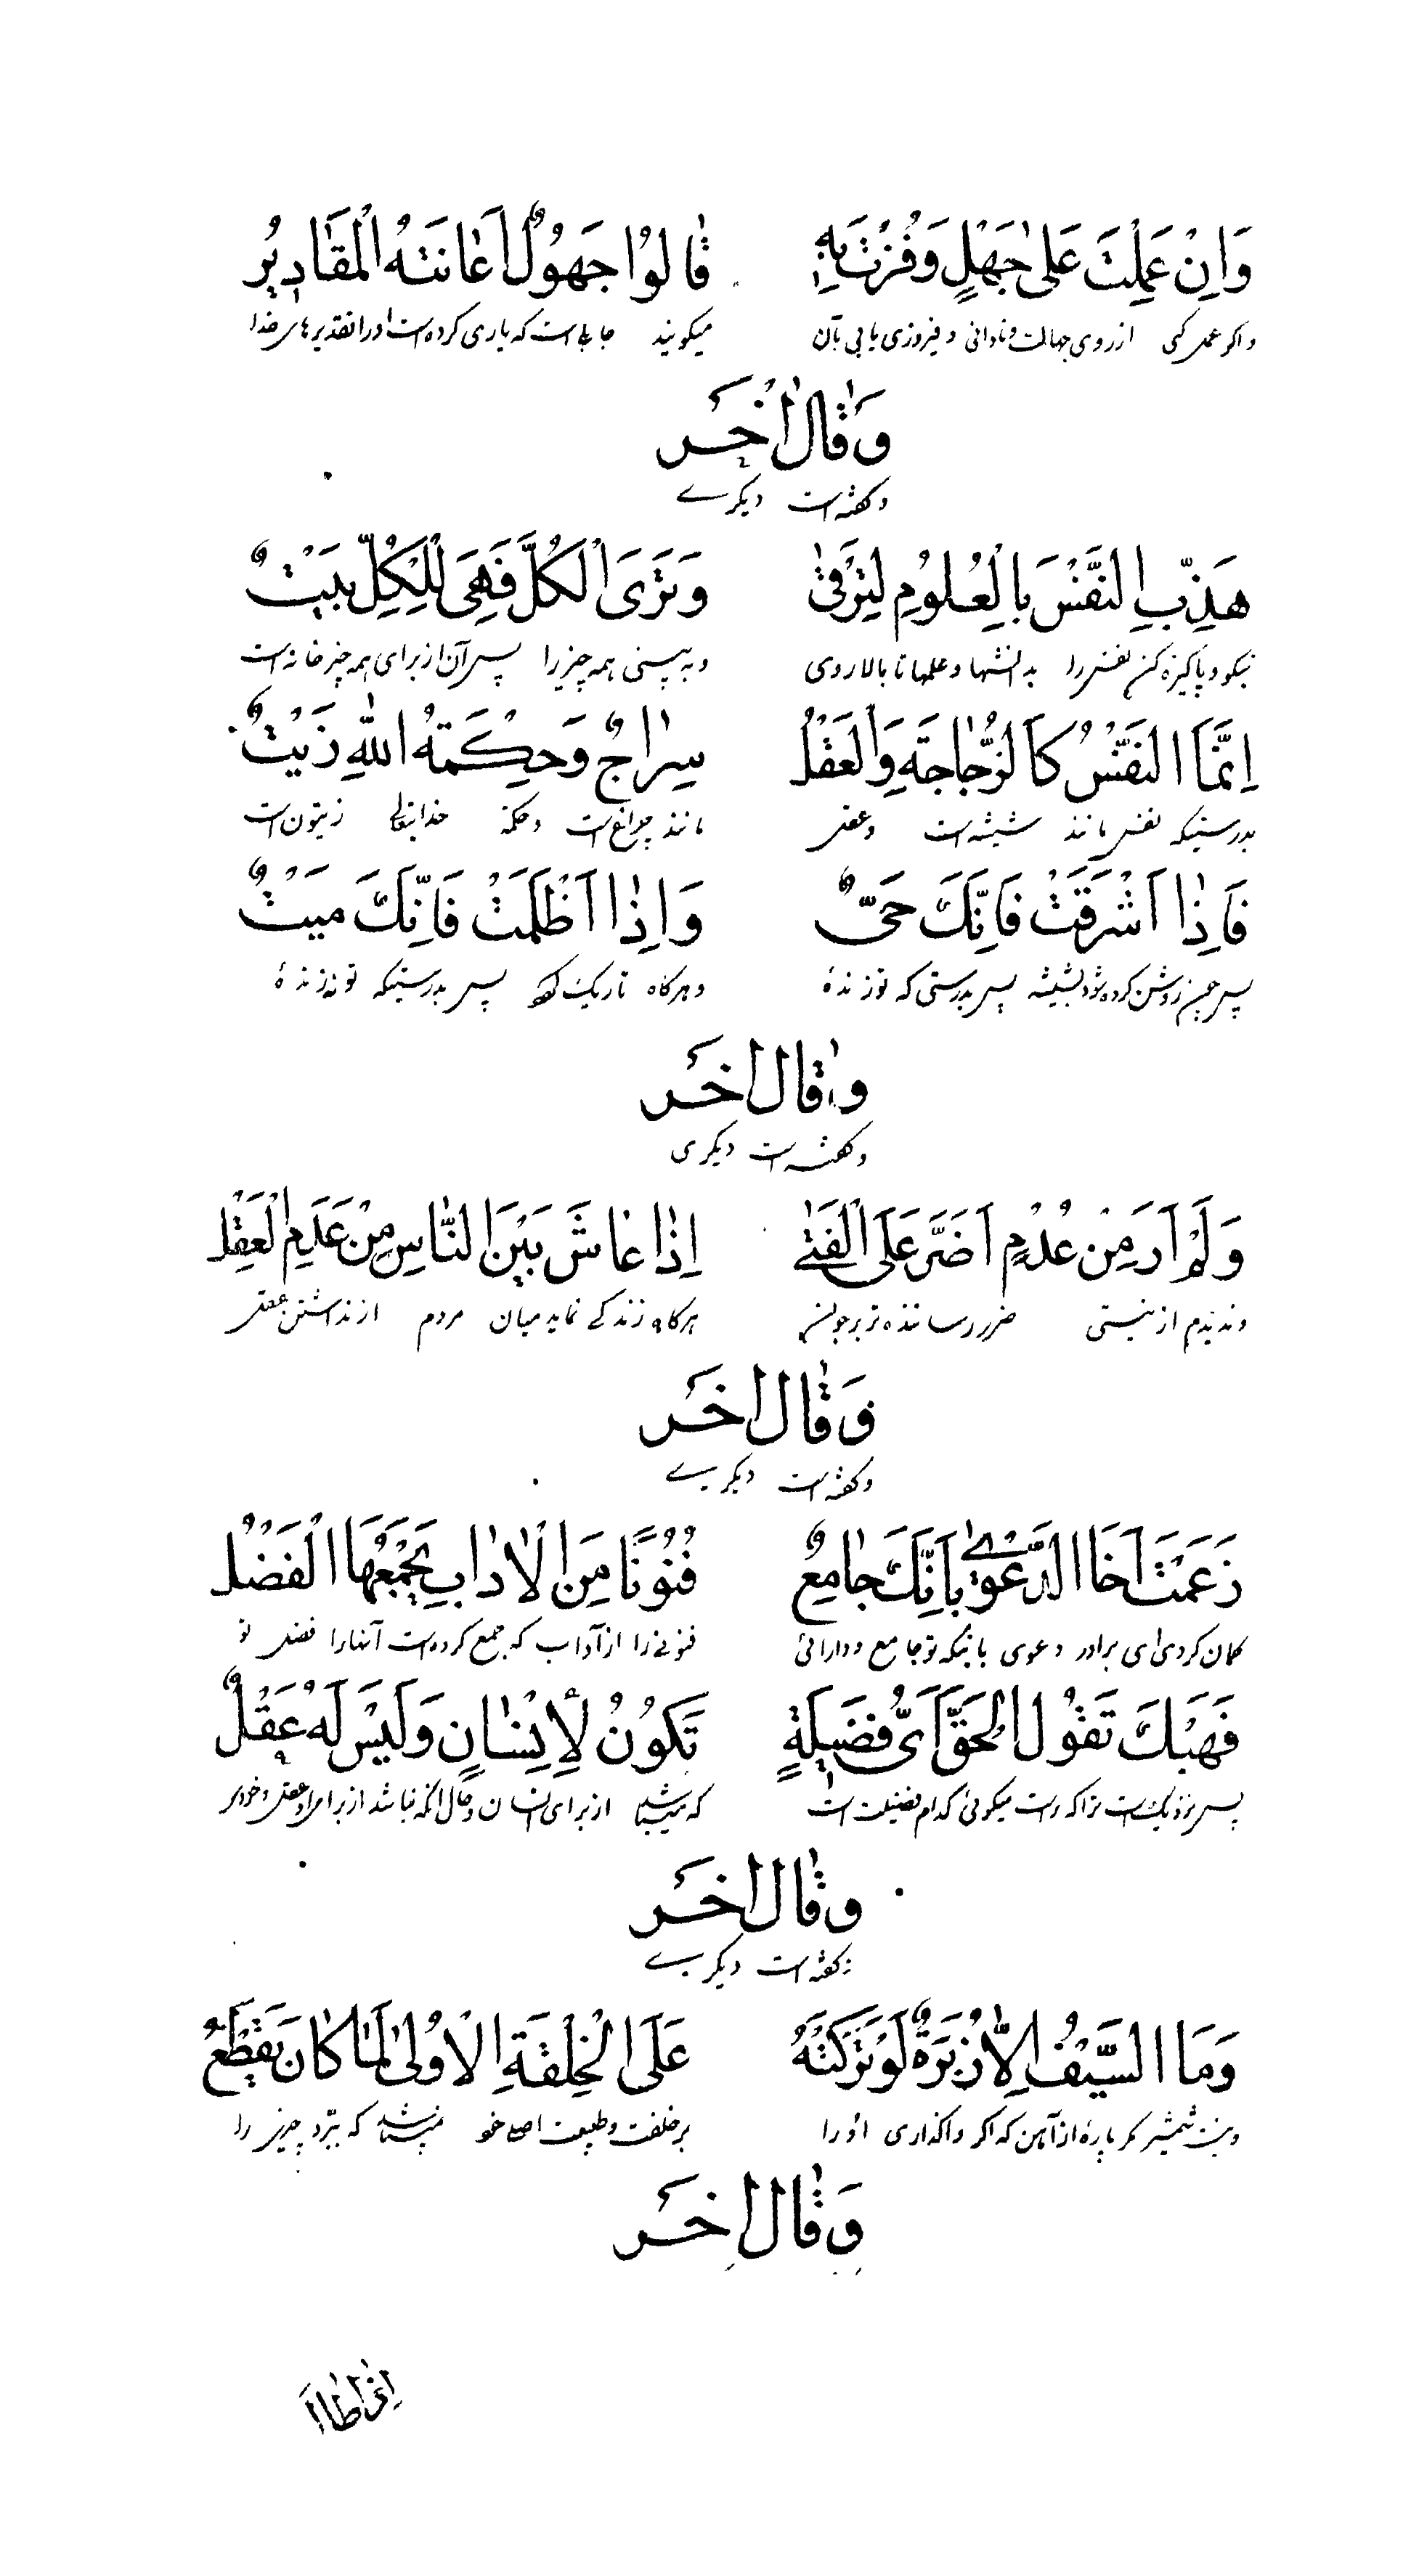 وَاِنْ عَمِلْتَ عَلىٰ جَهْلٍ وَفُزْتَ بِهٖ قٰالُوا جَهُولٌ اَعٰانَتْهُ الْمَقٰادِيرُ
واكر عمل كنى ازروى جهالت و نادانى و فيروزى يابى بآن ميكويند جاهلى است كه يارى كرده است اورا تقديرهاى خدا
وَقٰالَ اٰخَر
و كفته است ديكرے
هَذِّبِ النَّفْسَ بِالْعُلوُمِ لِتَرْقىٰ وَتَرَى الْكُلَّ فَهِىَ لِلْكِلِّ بَيْتٌ
نيكو و پاكيزه كن نفس را بدانشها و علمها تا بالا روى و به بينى همه چيز را پس آن از براى همه چيز خانه است
اِنَّمَا النَّفْسُ كَالزُّجٰاجَةِ وَالْعَقْلُ سِرٰاجٌ وَحِكْمَةُ اللّٰهِ زَيْتٌ
بدرستيكه نفس مانند شيشه است و عقل مانند چراغ است و حكمة خدايتعالى زيتون است
فَاِذٰا اَشْرَقَتْ فَاِنَّكَ حَىٌّ وَاِذٰا اَظْلَمَتْ فَاِنَّكَ مَيْتٌ
پس چون روشن كرده شود شيشه پس بدرستى كه تو زندهٔ و هركاه تاريك پس بدرستيكه تو نه زندهٔ
وَقٰالَ اٰخَر
و كفته است ديكرى
وَلَمْ اَرَ مِنْ عُدْمٍ اَضَرَّ عَلَى الْفَتىٰ اِذٰا عٰاشَ بَيْنَ النّٰاسِ مِنْ عَدَمِ الْعَقْلِ
و نديدم از نيستى ضرر رساننده تر بر جوان هركاه زندكے نمايد ميان مردم از نداشتن عقل
وَقٰالَ اٰخَر
و كفته است ديكرے
زَعَمْتَ اَخَا الدَّعْوىٰ بِاَنَّكَ جٰامِعٌ فُنُونًا مِنَ الْاٰدٰابِ يَجْمَعُهَا الْفَضْلُ
كمان كردى اى برادر دعوى باينكه تو جامع و دارائى فنونے را از آداب كه جمع كرده است آنها را فضل تو
فَهَبْكَ تَقُولُ الْحَقَّ اَىُّ فَضيلَةٍ تَكوُنُ لِأِنْسٰانٍ وَلَيْسَ لَهُ عَقْلٌ
پس نزديك است تراكه راست ميكوئى كدام فضيلت است كه ميباشد از براى انسان و حال آنكه نباشد از براى او عقل و خودى
وَقٰالَ اٰخَر
و كفته است ديكرے
وَمَا السَّيْفُ اِلّٰا زُبْرَةٌ لَوْ تَرَكْتَهُ عَلَى الْخِلْقَةِ الْاُولىٰ لَمٰا كٰانَ يَقْطَعُ
و نيست شمشير مكر پارهٔ از آهن كه اكر واكذارى او را بر خلقت و طبيعت اصل خو نميباشد كه ببرد چيزى را
وَقٰالَ اٰخَر